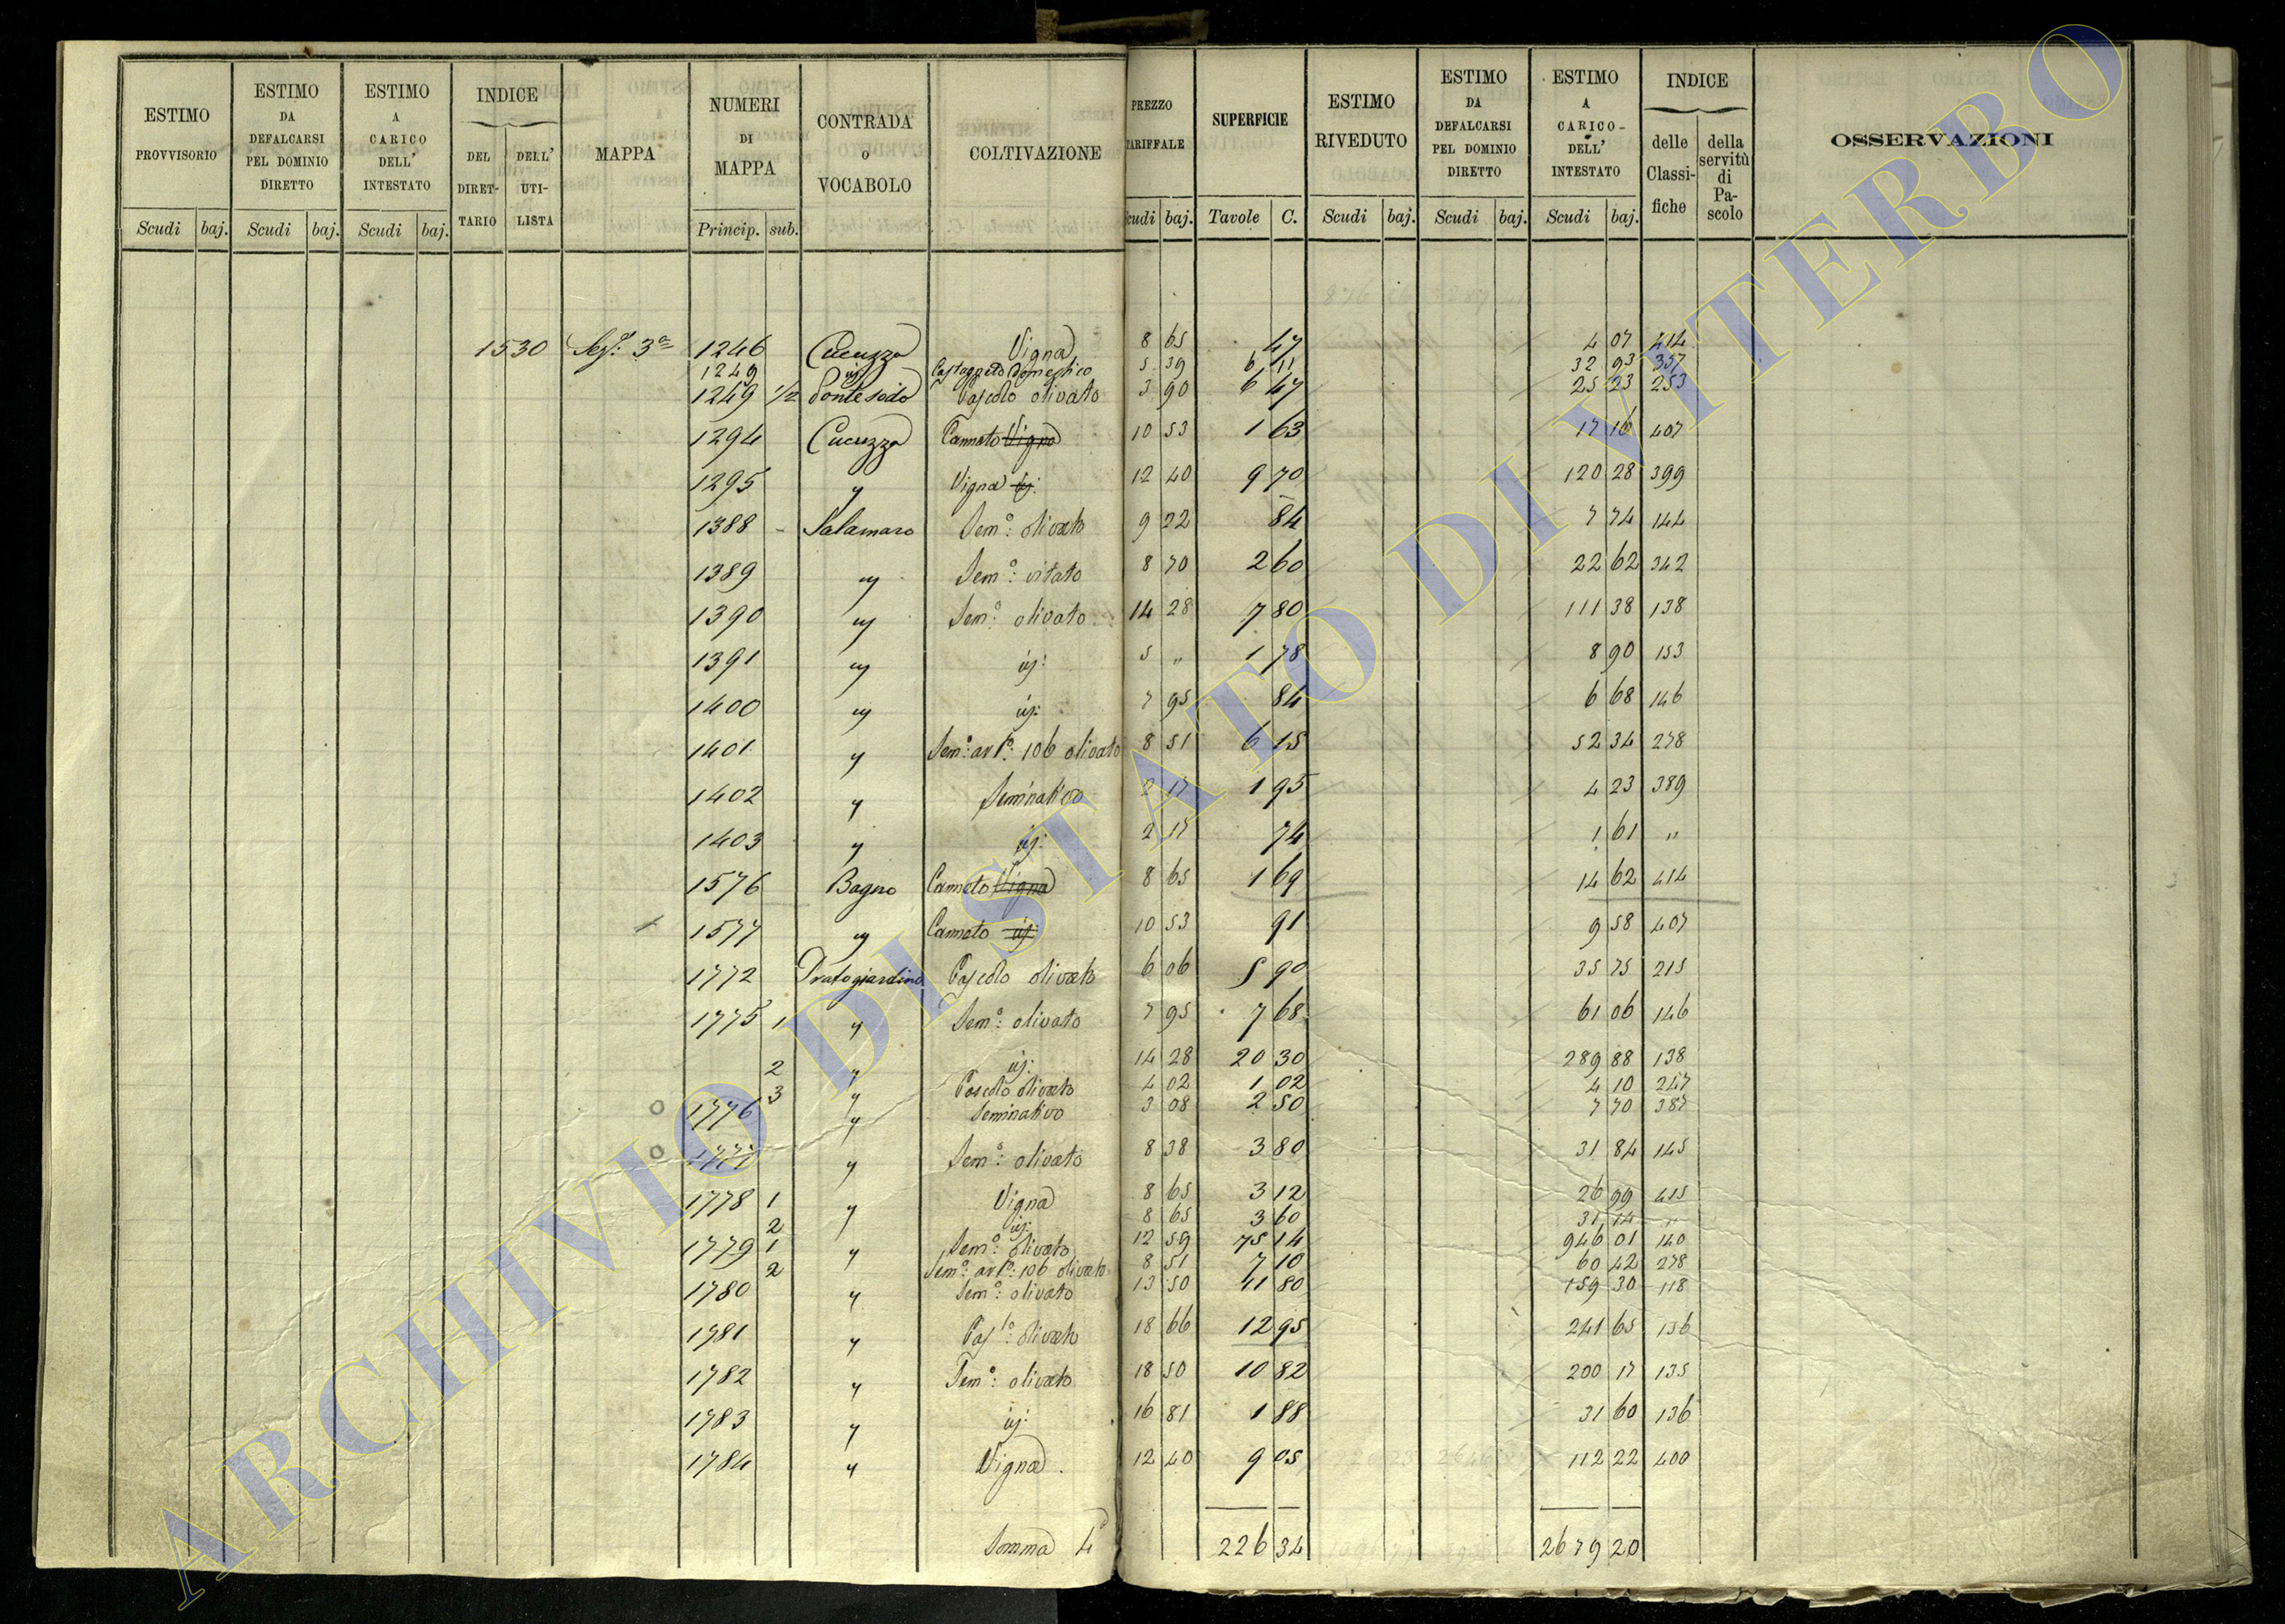 ESTIMO PROVVISORIO Scudi baj.
ESTIMO DA DEFALCARSI PEL DOMINIO DIRETTO Scudi baj.
ESTIMO A CARICO DELL' INTESTATO Scudi baj.
INDICE DEL DIRET- TARIO DELL' UTI- LISTA
MAPPA
NUMERI DI MAPPA Princip. sub.
CONTRADA O VOCABOLO
COLTIVAZIONE
PREZZO TARIFFALE Scudi baj.
SUPERFICIE Tavole C.
ESTIMO RIVEDUTO Scudi baj.
ESTIMO DA DEFALCARSI PEL DOMINIO DIRETTO Scudi baj.
ESTIMO A CARICO DELL' INTESTATO Scudi baj.
INDICE delle Classi- fiche della servitù di Pa- scolo
OSSERVAZIONI
1530 Sez: 3ª 1246 Cucuzza Vigna 8 65 47 4 07 414
1249 Castagneto Domestico 5 39 6 11 32 93 357
1249 1/2 Pontesodo Pascolo olivato 3 90 6 47 25 23 253
1294 Cucuzza Canneto Vigna 10 53 1 63 17 16 407
1295 " Vigna 12 40 9 70 120 28 399
1388 - Salamaro Semº: olivato 9 22 84 7 74 144
1389 " Semº: vitato 8 70 2 60 22 62 342
1390 " Semº: olivato 14 28 7 80 111 38 138
1391 " id: 5 " 1 78 8 90 153
1400 " id: 7 95 84 6 68 146
1401 " Semº: artº: 106 olivato 8 51 6 15 52 34 278
1402 " Seminativo 2 17 1 95 4 23 389
1403 " id: 2 17 74 1 61 "
1576 Bagno Canneto Vigna 8 65 1 69 14 62 414
1577 " Canneto id: 10 53 91 9 58 407
1772 Pratogiardino Pascolo olivato 6 06 5 90 35 75 215
1775 1 " Semº: olivato 7 95 7 68 61 06 146
2 " id: 14 28 20 30 289 88 138
3 " Pascolo olivato 4 02 1 02 4 10 247
1776 " Seminativo 3 08 2 50 7 70 387
1777 " Semº: olivato 8 38 3 80 31 84 145
1778 1 " Vigna 8 65 3 12 26 99 415
2 id: 8 65 3 60 31 14 "
1779 1 " Semº: olivato 12 59 75 14 946 01 140
2 Semº: artº: 106 olivato 8 51 7 10 60 42 278
1780 " Semº: olivato 13 50 11 80 159 30 118
1781 " Pasº: olivato 18 66 12 95 241 65 136
1782 " Semº: olivato 18 50 10 82 200 17 135
1783 " id: 16 81 1 88 31 60 136
1784 " Vigna 12 40 9 05 112 22 400
Somma 226 34 2679 20
ARCHIVIO DI STATO DI VITERBO